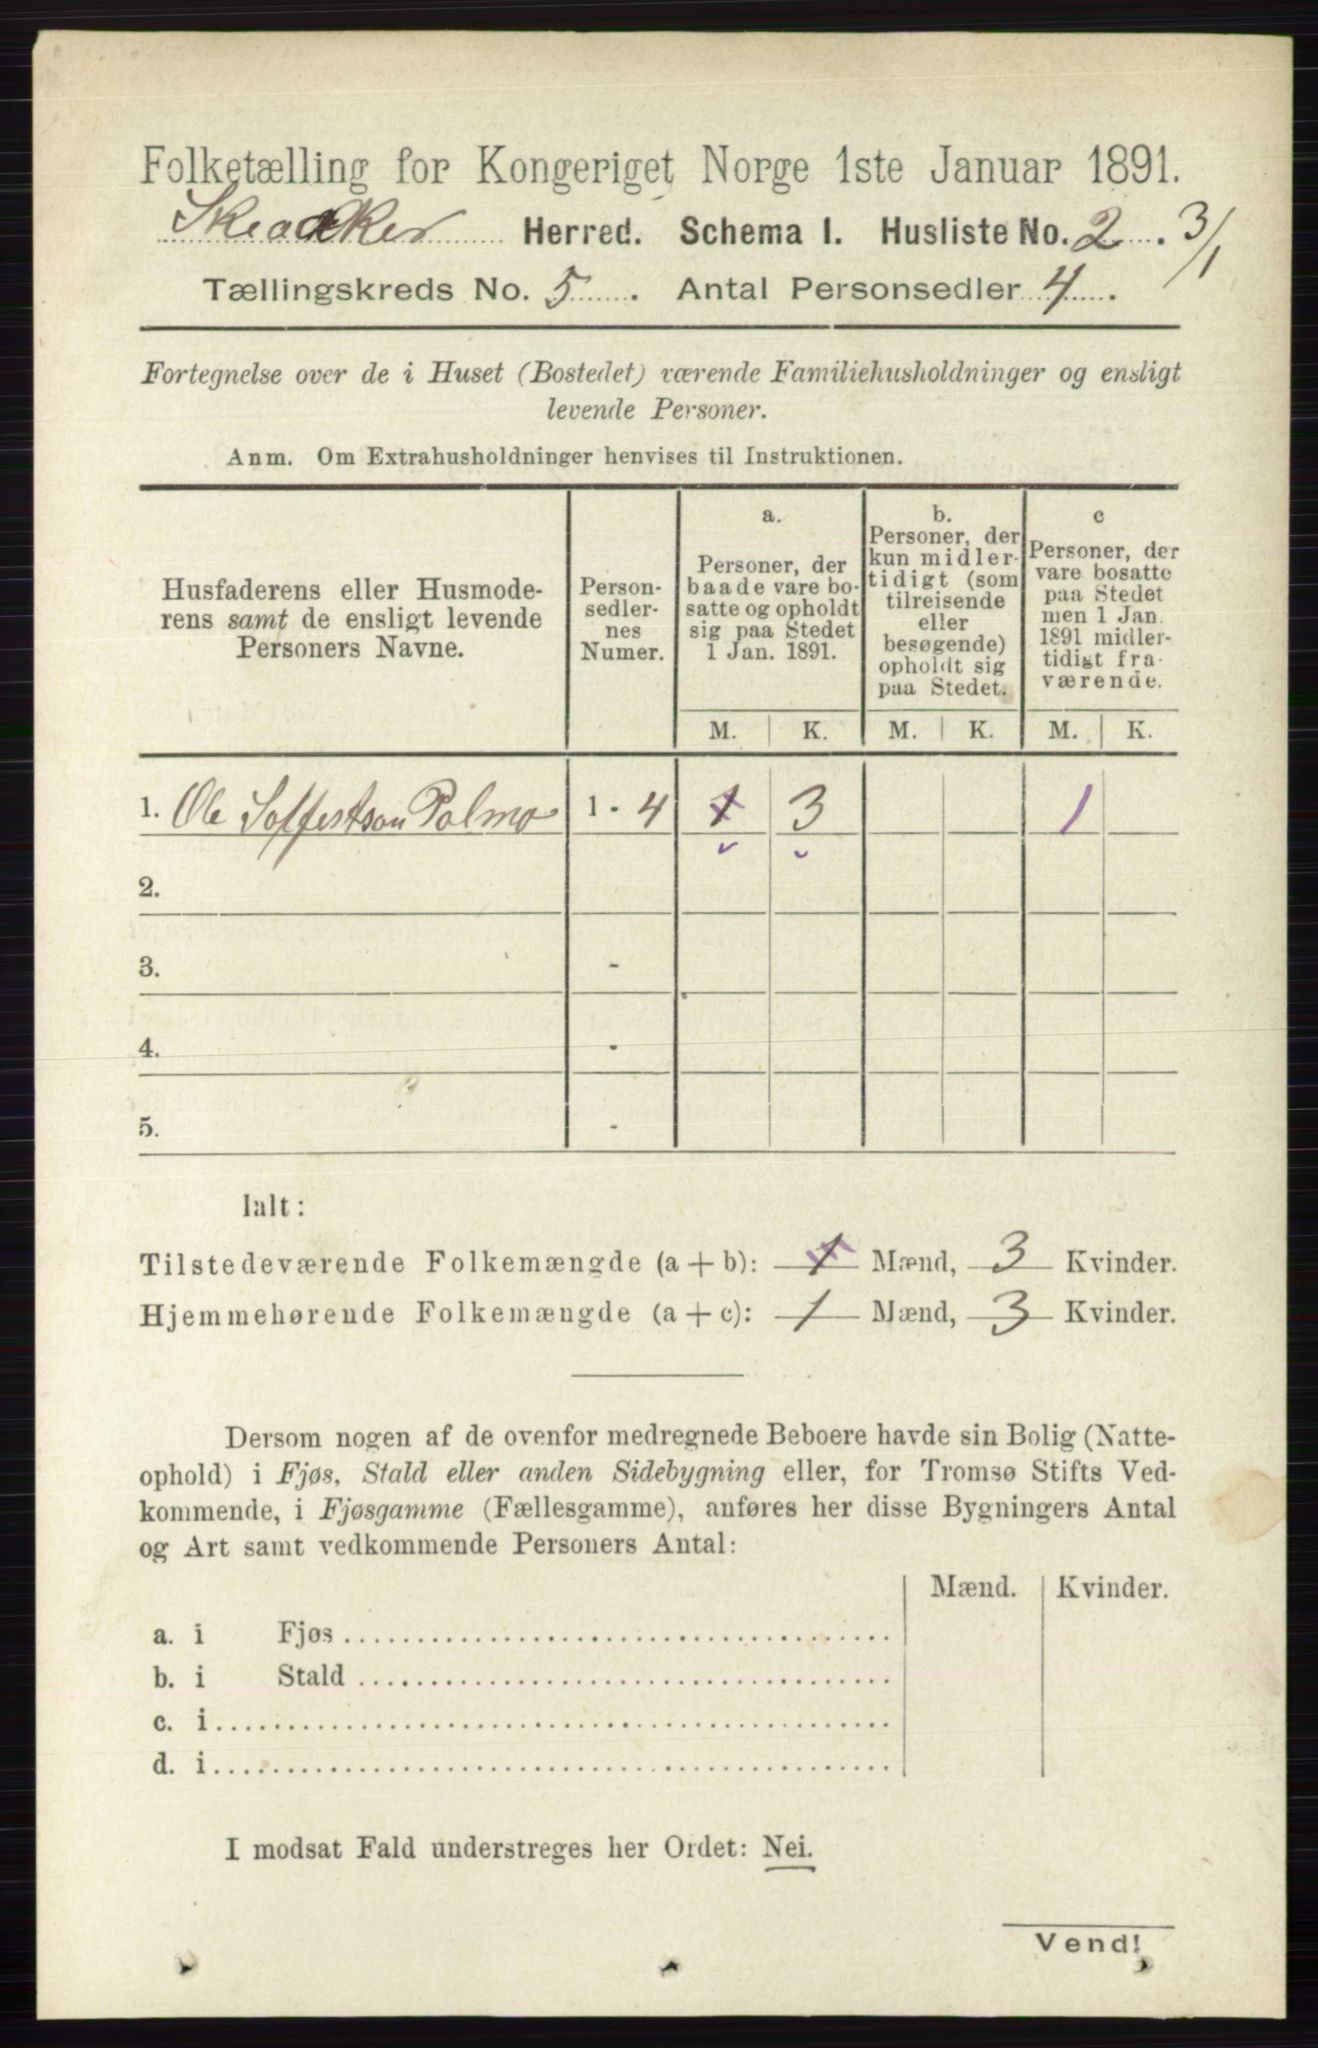 Folketælling for Kongeriget Norge 1ste Januar 1891.
Skeaker Herred. Schema I. Husliste No. 2. 3/1
Tællingskreds No. 5. Antal Personsedler 4.
Fortegnelse over de i Huset (Bostedet) værende Familiehusholdninger og ensligt
levende Personer.
Anm. Om Extrahusholdninger henvises til Instruktionen.
Husfaderens eller Husmode-
rens samt de ensligt levende
Personers Navne.
Person-
sedler-
nes
Numer.
a.
Personer, der
baade vare bo-
satte og opholdt
sig paa Stedet
1 Jan. 1891.
b.
Personer, der
kun midler-
tidigt (som
tilreisende
eller
besøgende)
opholdt sig
paa Stedet.
c
Personer, der
vare bosatte
paa Stedet
men 1 Jan.
1891 midler-
tidigt fra-
værende.
M. K. M. K. M. K.
1. Ole Solfestson Polmo 1 - 4 1 3 1
2.
3. -
4. -
5. -
Ialt:
Tilstedeværende Folkemængde (a + b): 1 Mænd, 3 Kvinder.
Hjemmehørende Folkemængde (a + c): 1 Mænd, 3 Kvinder.
Dersom nogen af de ovenfor medregnede Beboere havde sin Bolig (Natte-
ophold) i Fjøs, Stald eller anden Sidebygning eller, for Tromsø Stifts Ved-
kommende, i Fjøsgamme (Fællesgamme), anføres her disse Bygningers Antal
og Art samt vedkommende Personers Antal:
Mænd. Kvinder.
a. i Fjøs
b. i Stald
c. i
d. i
I modsat Fald understreges her Ordet: Nei.
Vend!